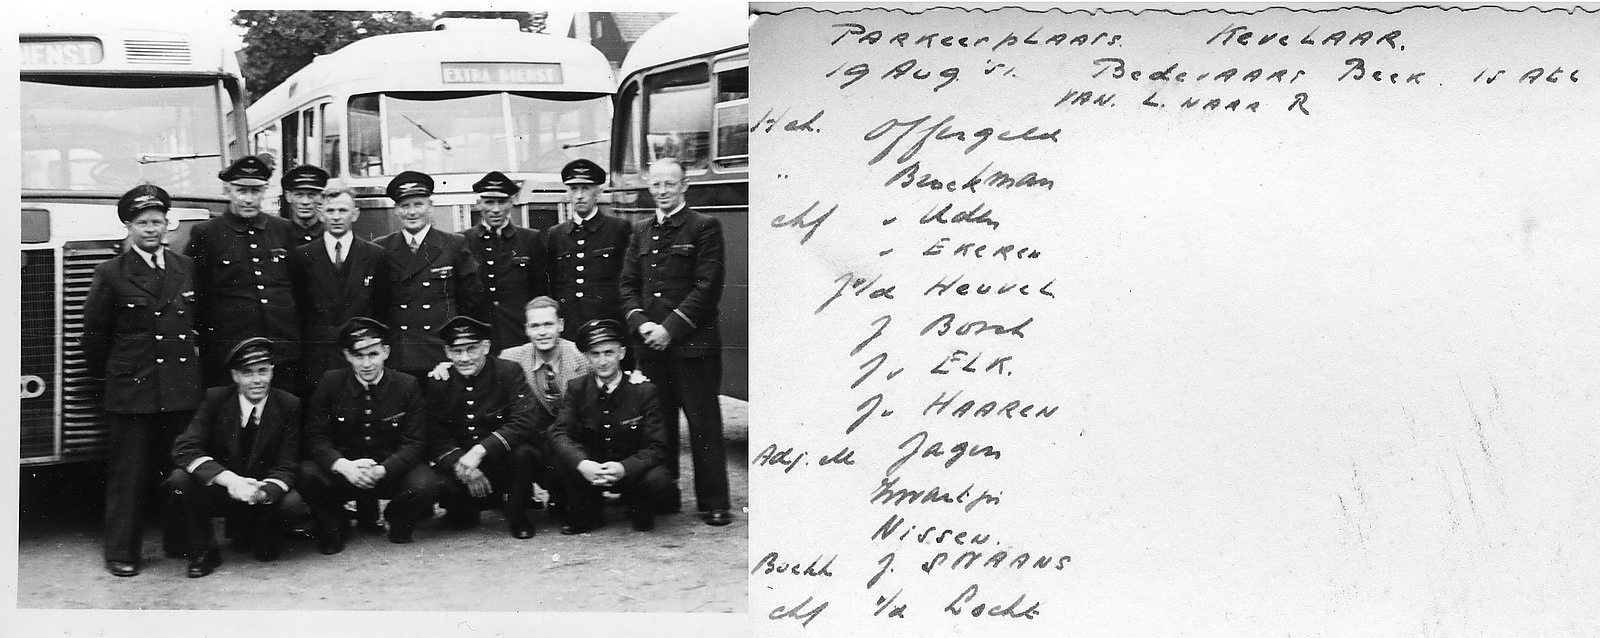 DIENST
EXTRA DIENST
Parkeerplaats. Kevelaar.
19 Aug '51. Bedevaart Beek. 15 Att
van. L. naar R
Offergeld
" Brockman
chf v Uden
v Ekeren
J v/d Heuvel
J Borst
J v Elk.
J v Haaren
Adj. M Jagers
Nissen.
Boekh J. Swaans
chf v/d Locht